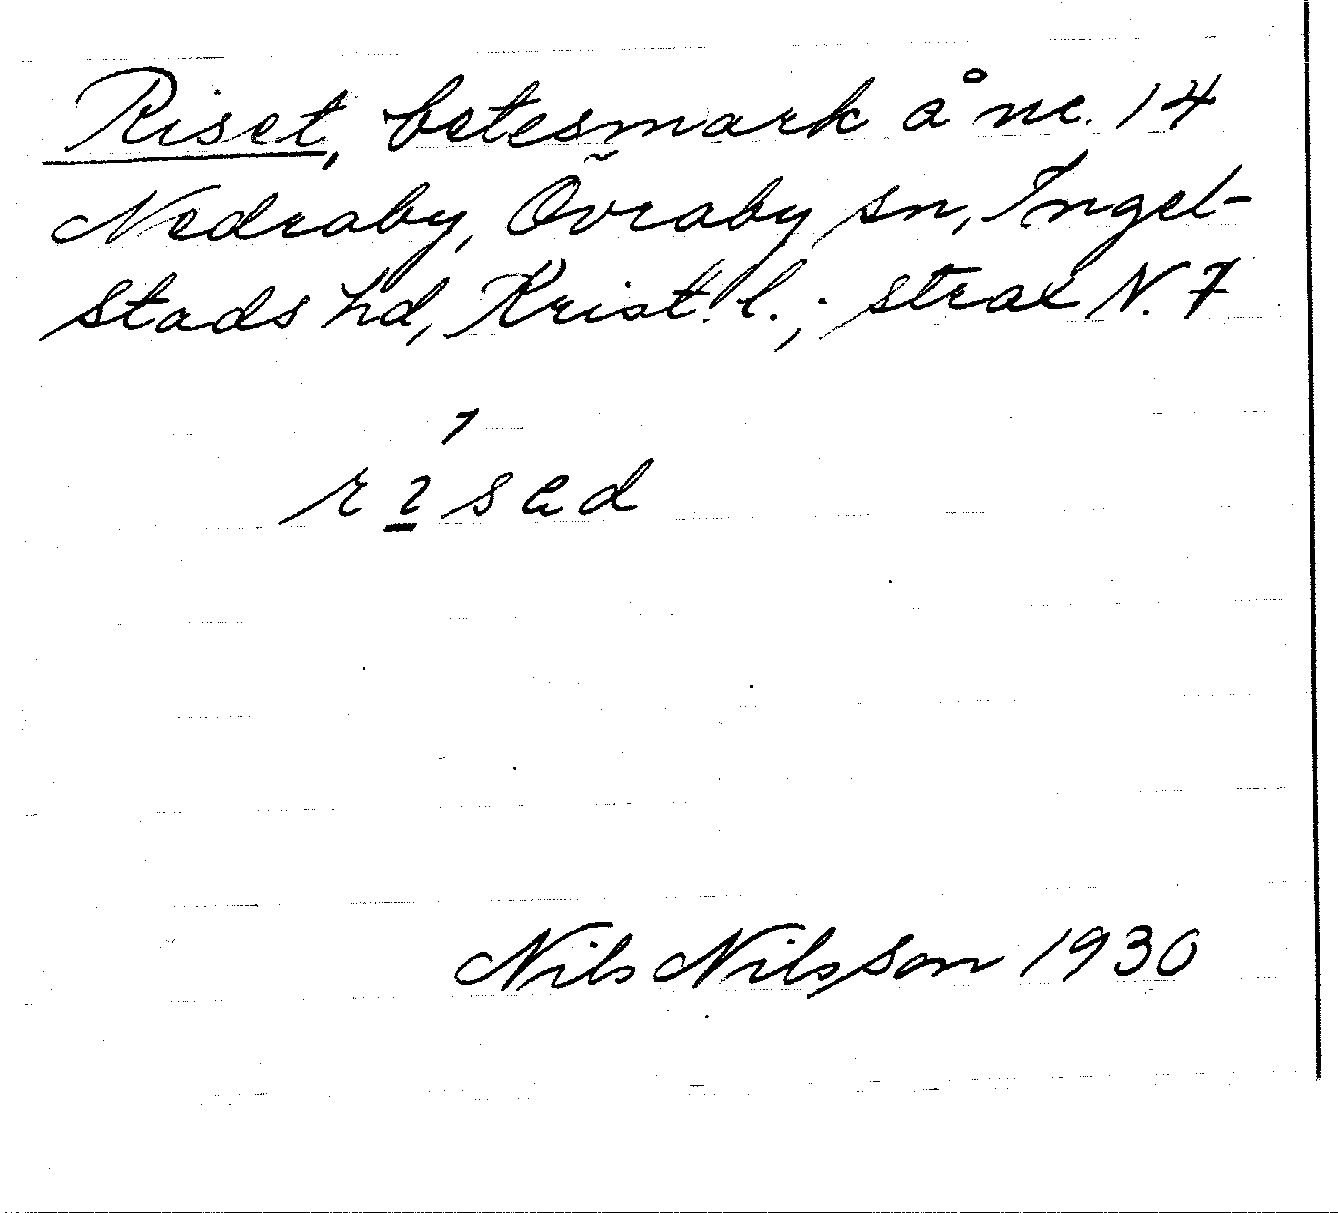 Riset, betesmark å nr. 14
Nedraby, Övraby sn, Ingel-
stads hd, Krist. l.; strax N. 7
rised
Nils Nilsson 1930